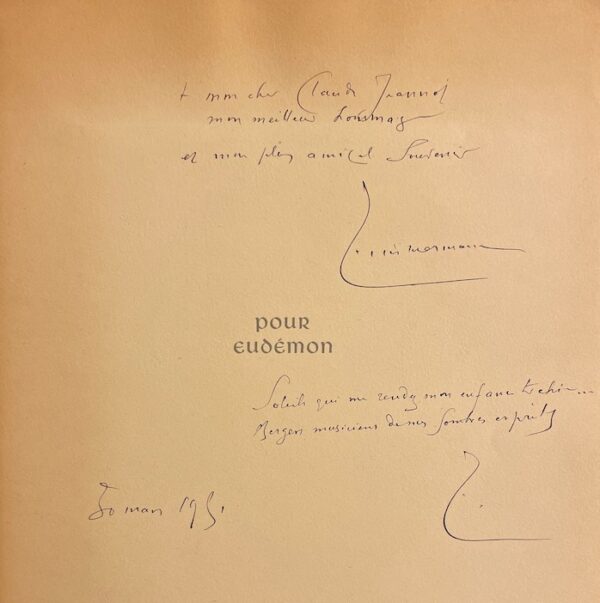 mon cher Claude Jeannot
mon meilleur hommage
et mon plus amical Souvenir
POUR
EUDÉMON
Soleils qui me rendez mon enfance
Bergers musiciens de mes sombres esprits
30 mars 1951